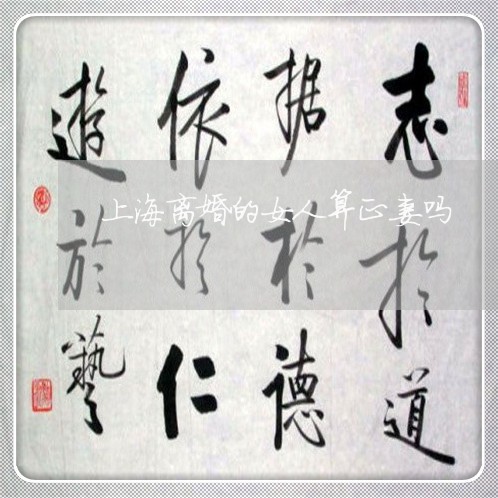 志於道
据於德
依於仁
遊於藝
上海离婚的女人算正妻吗